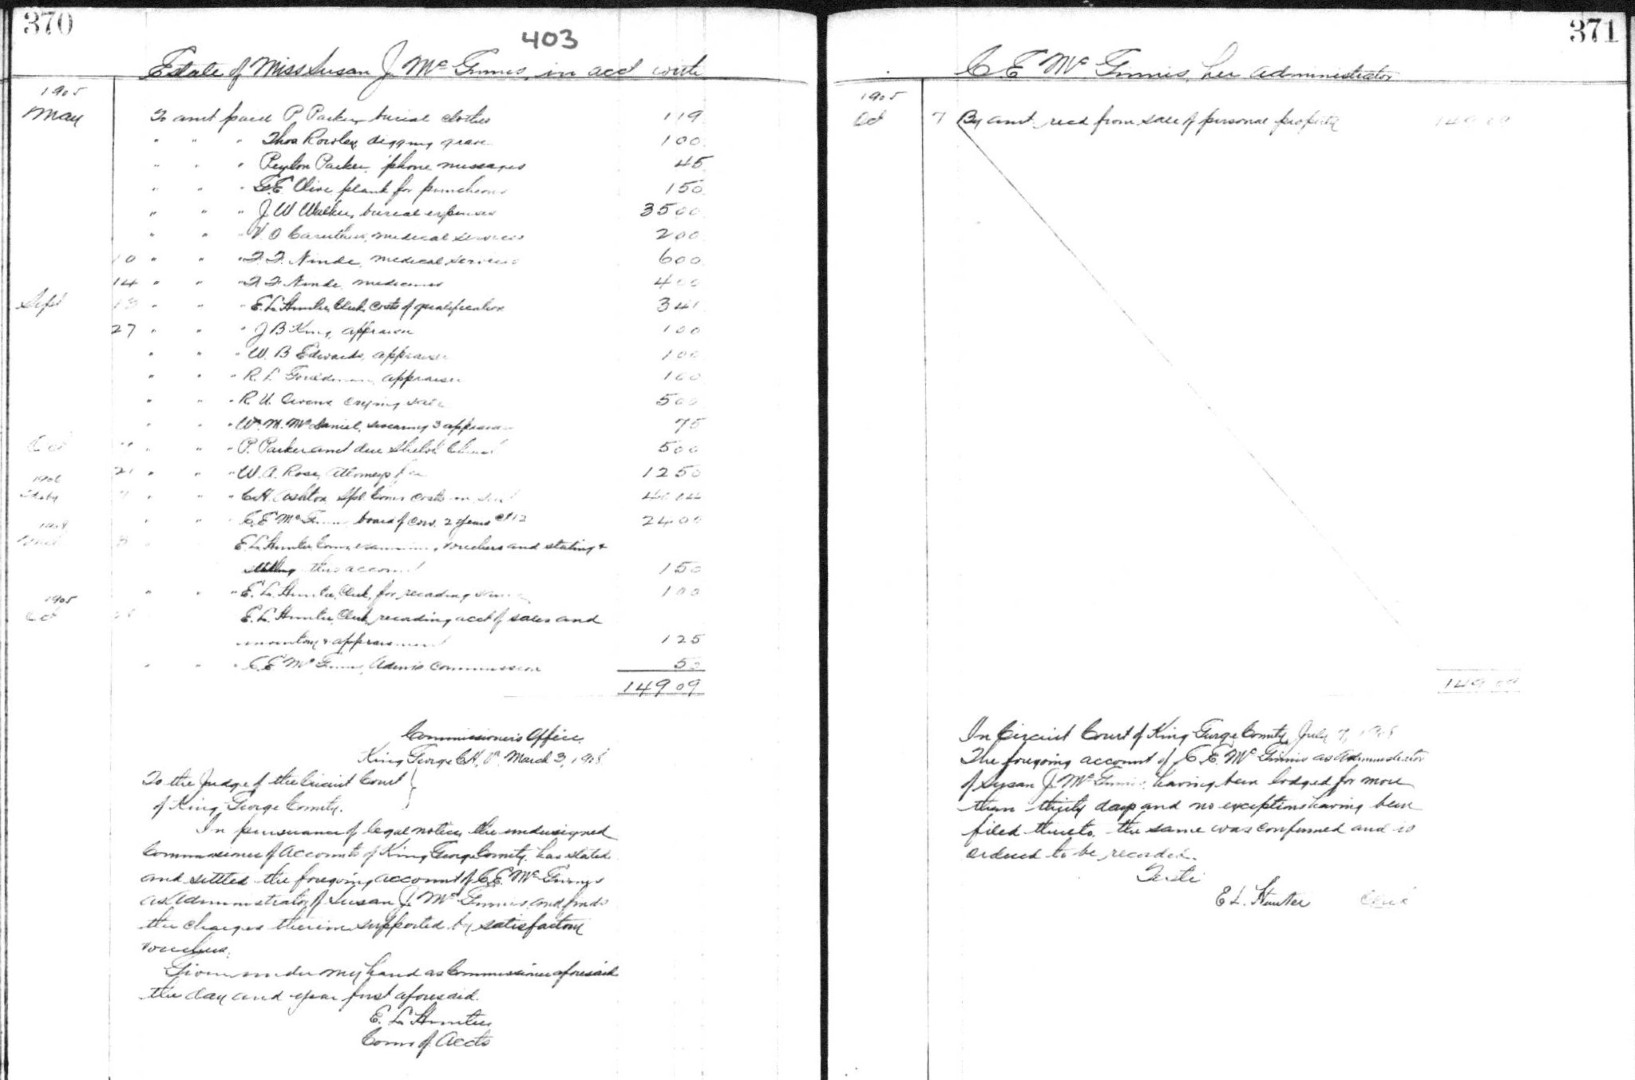 370
403
Estate of Miss Susan J. McGinnis, in acct with
1905
May To amt paid P Parker, burial clothes 1 19
" " " Thos Rowley, digging grave 1 00
" " " Peyton Parker, 'phone messages 45
" " " Olive plank for puncheons 1 50
" " " J W Walker, burial expenses 35 00
" " " medical services 2 00
10 " " " Ninde, medical services 6 00
14 " " " Ninde, medicines 4 00
Sept 13 " " " E. L. Hunter, Clerk, costs of qualification 3 41
27 " " " J B King, appraiser 1 00
" " " W. B Edwards, appraiser 1 00
" " " R. L. appraiser 1 00
" " " R. U. crying sale 5 00
" " " Wm. M. McDaniel, swearing 3 appraisers 75
Oct " " " P. Parker amt due 5 00
21 " " " W. A. Rose, Attorneys fee 12 50
" " C H Ashton Spl Comr costs in suit
" " C. E McGinnis board of cow, 2 years @ $12 24 00
E. L. Hunter Comr examining vouchers and stating &
settling this account 1 50
" " " E. L. Hunter, Clerk, for recording same 1 00
1905
Oct E. L. Hunter, Clerk, recording acct of sales and
inventory & appraisement 1 25
" " " C. E McGinnis, Admrs commission 5
149 09
Commissioner's Office,
King George C.H, Va. March 3, 1908
To the Judge of the Circuit Court
of King George County.
In pursuance of legal notice, the undersigned
Commissioner of Accounts of King George County, has stated
and settled the foregoing account of C. E. McGinnis
as Administrator of Susan J. McGinnis, and finds
the charges therein supported by satisfactory
vouchers.
Given under my hand as Commissioner aforesaid
the day and year first aforesaid.
E. L. Hunter
Comr of Accts
371
C E McGinnis, her administrator
1905
Oct 7 By amt recd from sale of personal property 149 09
149 09
In Circuit Court of King George County, July 7, 1908
The foregoing account of C. E. McGinnis as Administrator
of Susan J. McGinnis, having been lodged for more
than thirty days and no exceptions having been
filed thereto, the same was confirmed and is
ordered to be recorded.
Teste
E L. Hunter Clerk